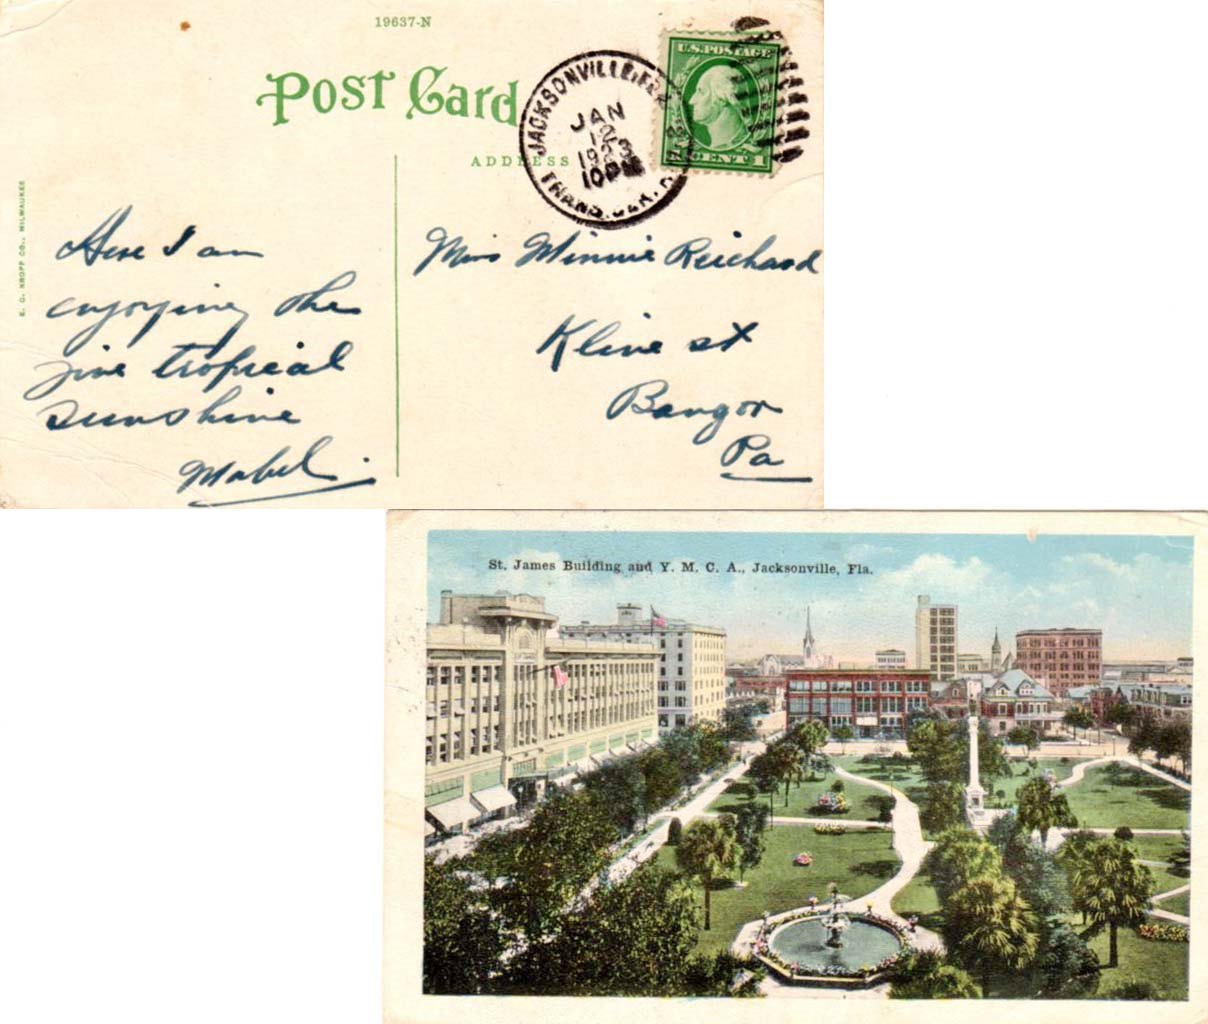 19637-N
POST CARD
ADDRESS
JACKSONVILLE, FLA.
JAN
12
1923
10PM
TRANS. CLK.
U.S. POSTAGE
CENT 1
E. C. KROPP CO., MILWAUKEE
Here I am
enjoying the
fine tropical
sunshine
Mabel.
Miss Minnie Reichard
Kline st
Bangor
Pa
St. James Building and Y. M. C. A., Jacksonville, Fla.